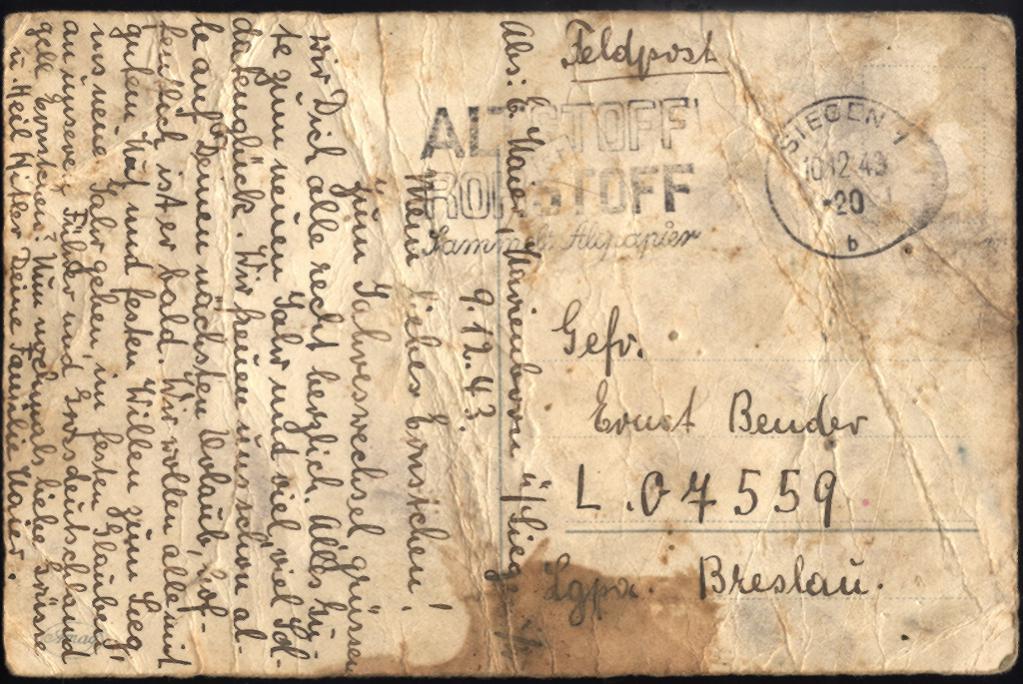 Feldpost
ALTSTOFF
ROHSTOFF
Sammelt Altpapier
SIEGEN 1
10.12.43
-20
b
Gefr.
Ernst Bender
L.07559
Lgpa. Breslau.
Abs: E. Maier, Marienborn ü/Siegen
9.12.43.
Mein lieber Ernstchen!
Zum Jahreswechsel grüssen
wir Dich alle recht herzlich. Alles Gu-
te zum neuen Jahr und viel, viel Sol-
datenglück. Wir freuen uns schon al-
le auf Deinen nächsten Urlaub, hof-
fentlich ist er bald. Wir wollen alle mit
gutem Mut und festen Willen zum Sieg
ins neue Jahr gehen, im festen Glauben
an unseren Führer und Grosdeutschland
gell Ernstchen? Nun nochmals liebe Grüsse
u. Heil Hitler Deine Familie Maier.